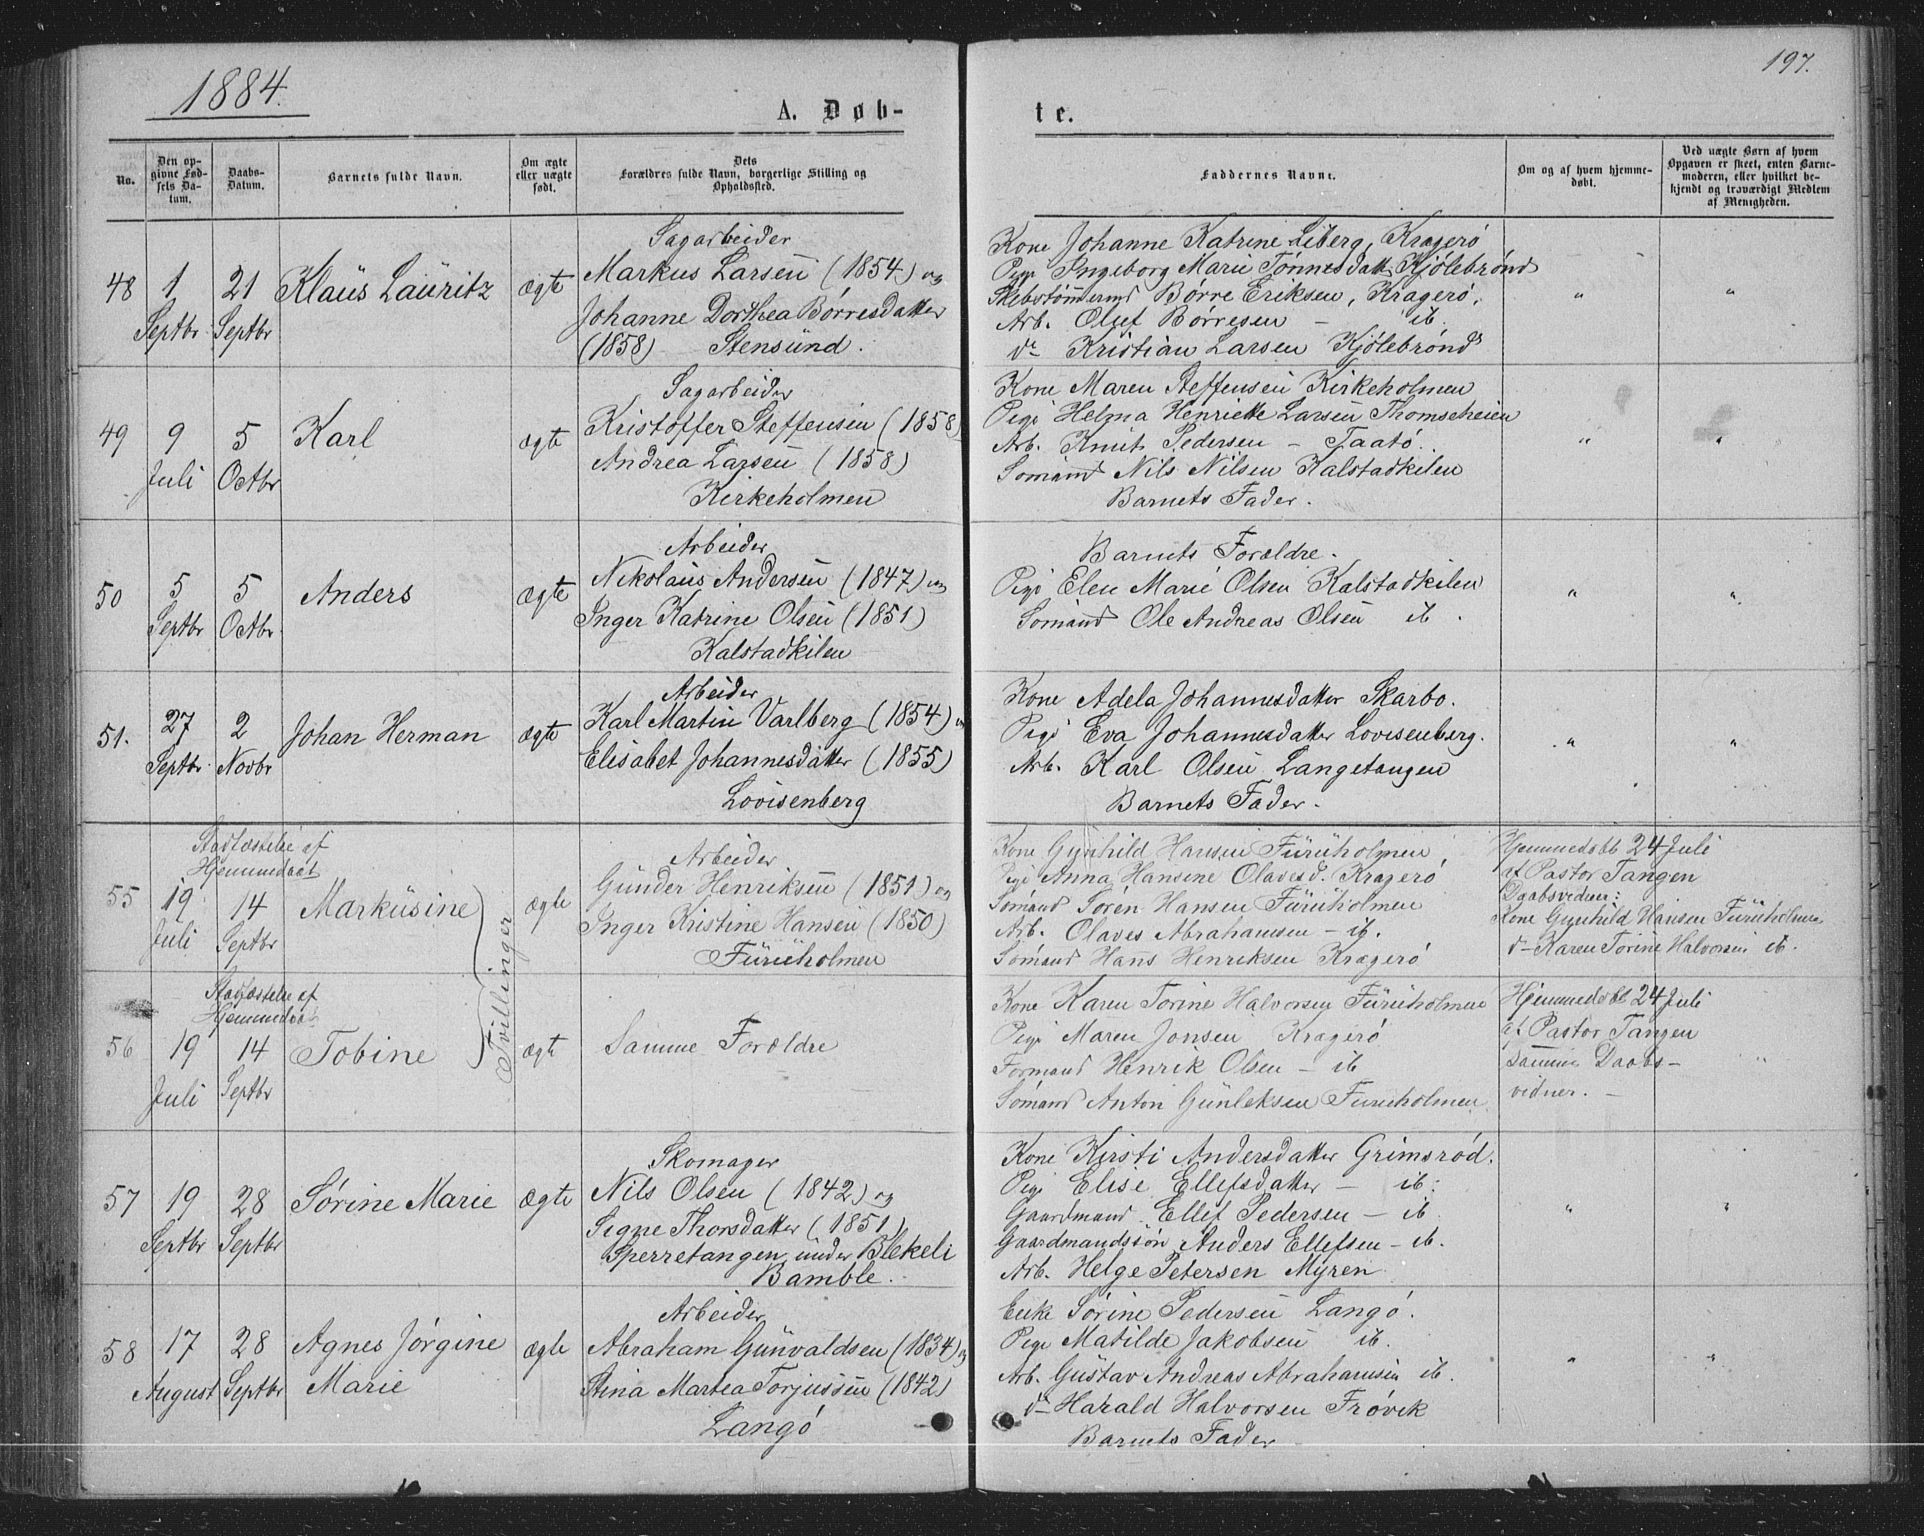 1884.
197.
A. Døb-
te.
No.
Den op-
givne Fød-
sels Da-
tum.
Daabs-
Datum.
Barnets fulde Navn.
Om ægte
eller uægte
født.
Dets
Forældres fulde Navn, borgerlige Stilling og
Opholdssted.
Faddernes Navne.
Om og af hvem hjemme-
døbt.
Ved uægte Børn af hvem
Opgaven er skeet, enten Barne-
moderen, eller hvilket be-
kjendt og troværdigt Medlem
af Menigheden.
48
1
Septbr
21
Septbr
Klaus Lauritz
ægte
Sagarbeider
Markus Larsen (1854) og
Johanne Dorthea Børresdatter
(1858) Stensund.
Kone Johanne Katrine Liberg, Kragerø
Pige Ingeborg Marie Tønnesdatt. Kjølebrønd
Skibstømmermd Børre Eriksen, Kragerø,
Arb. Oluf Børresen - ib.
do Kristian Larsen Kjølebrønd
" "
49
9
Juli
5
Octbr
Karl
ægte
Sagarbeider
Kristoffer Steffensen (1858)
Andrea Larsen (1858)
Kirkeholmen
Kone Maren Steffensen Kirkeholmen
Pige Helma Henriette Larsen Thomseheien
Arb. Knut Pedersen - Taatø.
Sømand Nils Nilsen Kalstadkilen
Barnets Fader.
" "
50
5
Septbr
5
Octbr
Anders
ægte
Arbeider
Nikolaus Andersen (1847) og
Inger Katrine Olsen (1851)
Kalstadkilen
Barnets Forældre.
Pige Elen Marie Olsen Kalstadkilen
Sømand Ole Andreas Olsen ib.
" "
51.
27
Septbr
2
Novbr
Johan Herman
ægte
Arbeider
Karl Martin Varlberg (1854) og
Elisabet Johannesdatter (1855)
Lovisenberg
Kone Adela Johannesdatter Skarbo.
Pige Eva Johannesdatter Lovisenberg.
Arb. Karl Olsen Langetangen
Barnets Fader.
" "
Stadfæstelse af
Hjemmedaab
55
19
Juli
14
Septbr
Markusine
Tvillinger
ægte
Arbeider
Gunder Henriksen (1851) og
Inger Kristine Hansen (1850)
Furuholmen
Kone Gunhild Hansen Furuholmen
Pige Anna Hansine Olavesd. Kragerø
Sømand Søren Hansen Furuholmen
Arb. Olaves Abrahamsen - ib.
Sømand Hans Henriksen Kragerø
Hjemmedøbt 24 Juli
af Pastor Tangen
Daabsvidner:
Kone Gunhild Hansen Furuholmen
do Karen Torine Halvorsen ib.
Stadfæstelse af
Hjemmedaab
56
19
Juli
14
Septbr
Tobine
ægte
Samme Forældre
Kone Karen Torine Halvorsen Furuholmen
Pige Maren Jonsen Kragerø
Formand Henrik Olsen - ib
Sømand Anton Gunleksen Furuholmen
Hjemmedøbt 24 Juli
af Pastor Tangen
Samme Daabs-
vidner. -
"
57
19
Septbr
28
Septbr
Sørine Marie
ægte
Skomager
Nils Olsen (1842) og
Signe Thorsdatter (1851)
Sperretangen under Blekeli
Bamble.
Kone Kirsti Andersdatter Grimsrød.
Pige Elise Ellefsdatter - ib.
Gaardmand Ellef Pedersen - ib
Gaardmandssøn Anders Ellefsen - ib.
Arb. Helge Petersen Myren
" "
58
17
August
28
Septbr
Agnes Jørgine
Marie
ægte
Arbeider
Abraham Gunvaldsen (1834) og
Stina Martea Torjussen (1842)
Langø
Enke Sørine Pedersen Langø.
Pige Matilde Jakobsen ib.
Arb. Gustav Andreas Abrahamsen ib.
do Harald Halvorsen Frøvik
Barnets Fader
" "